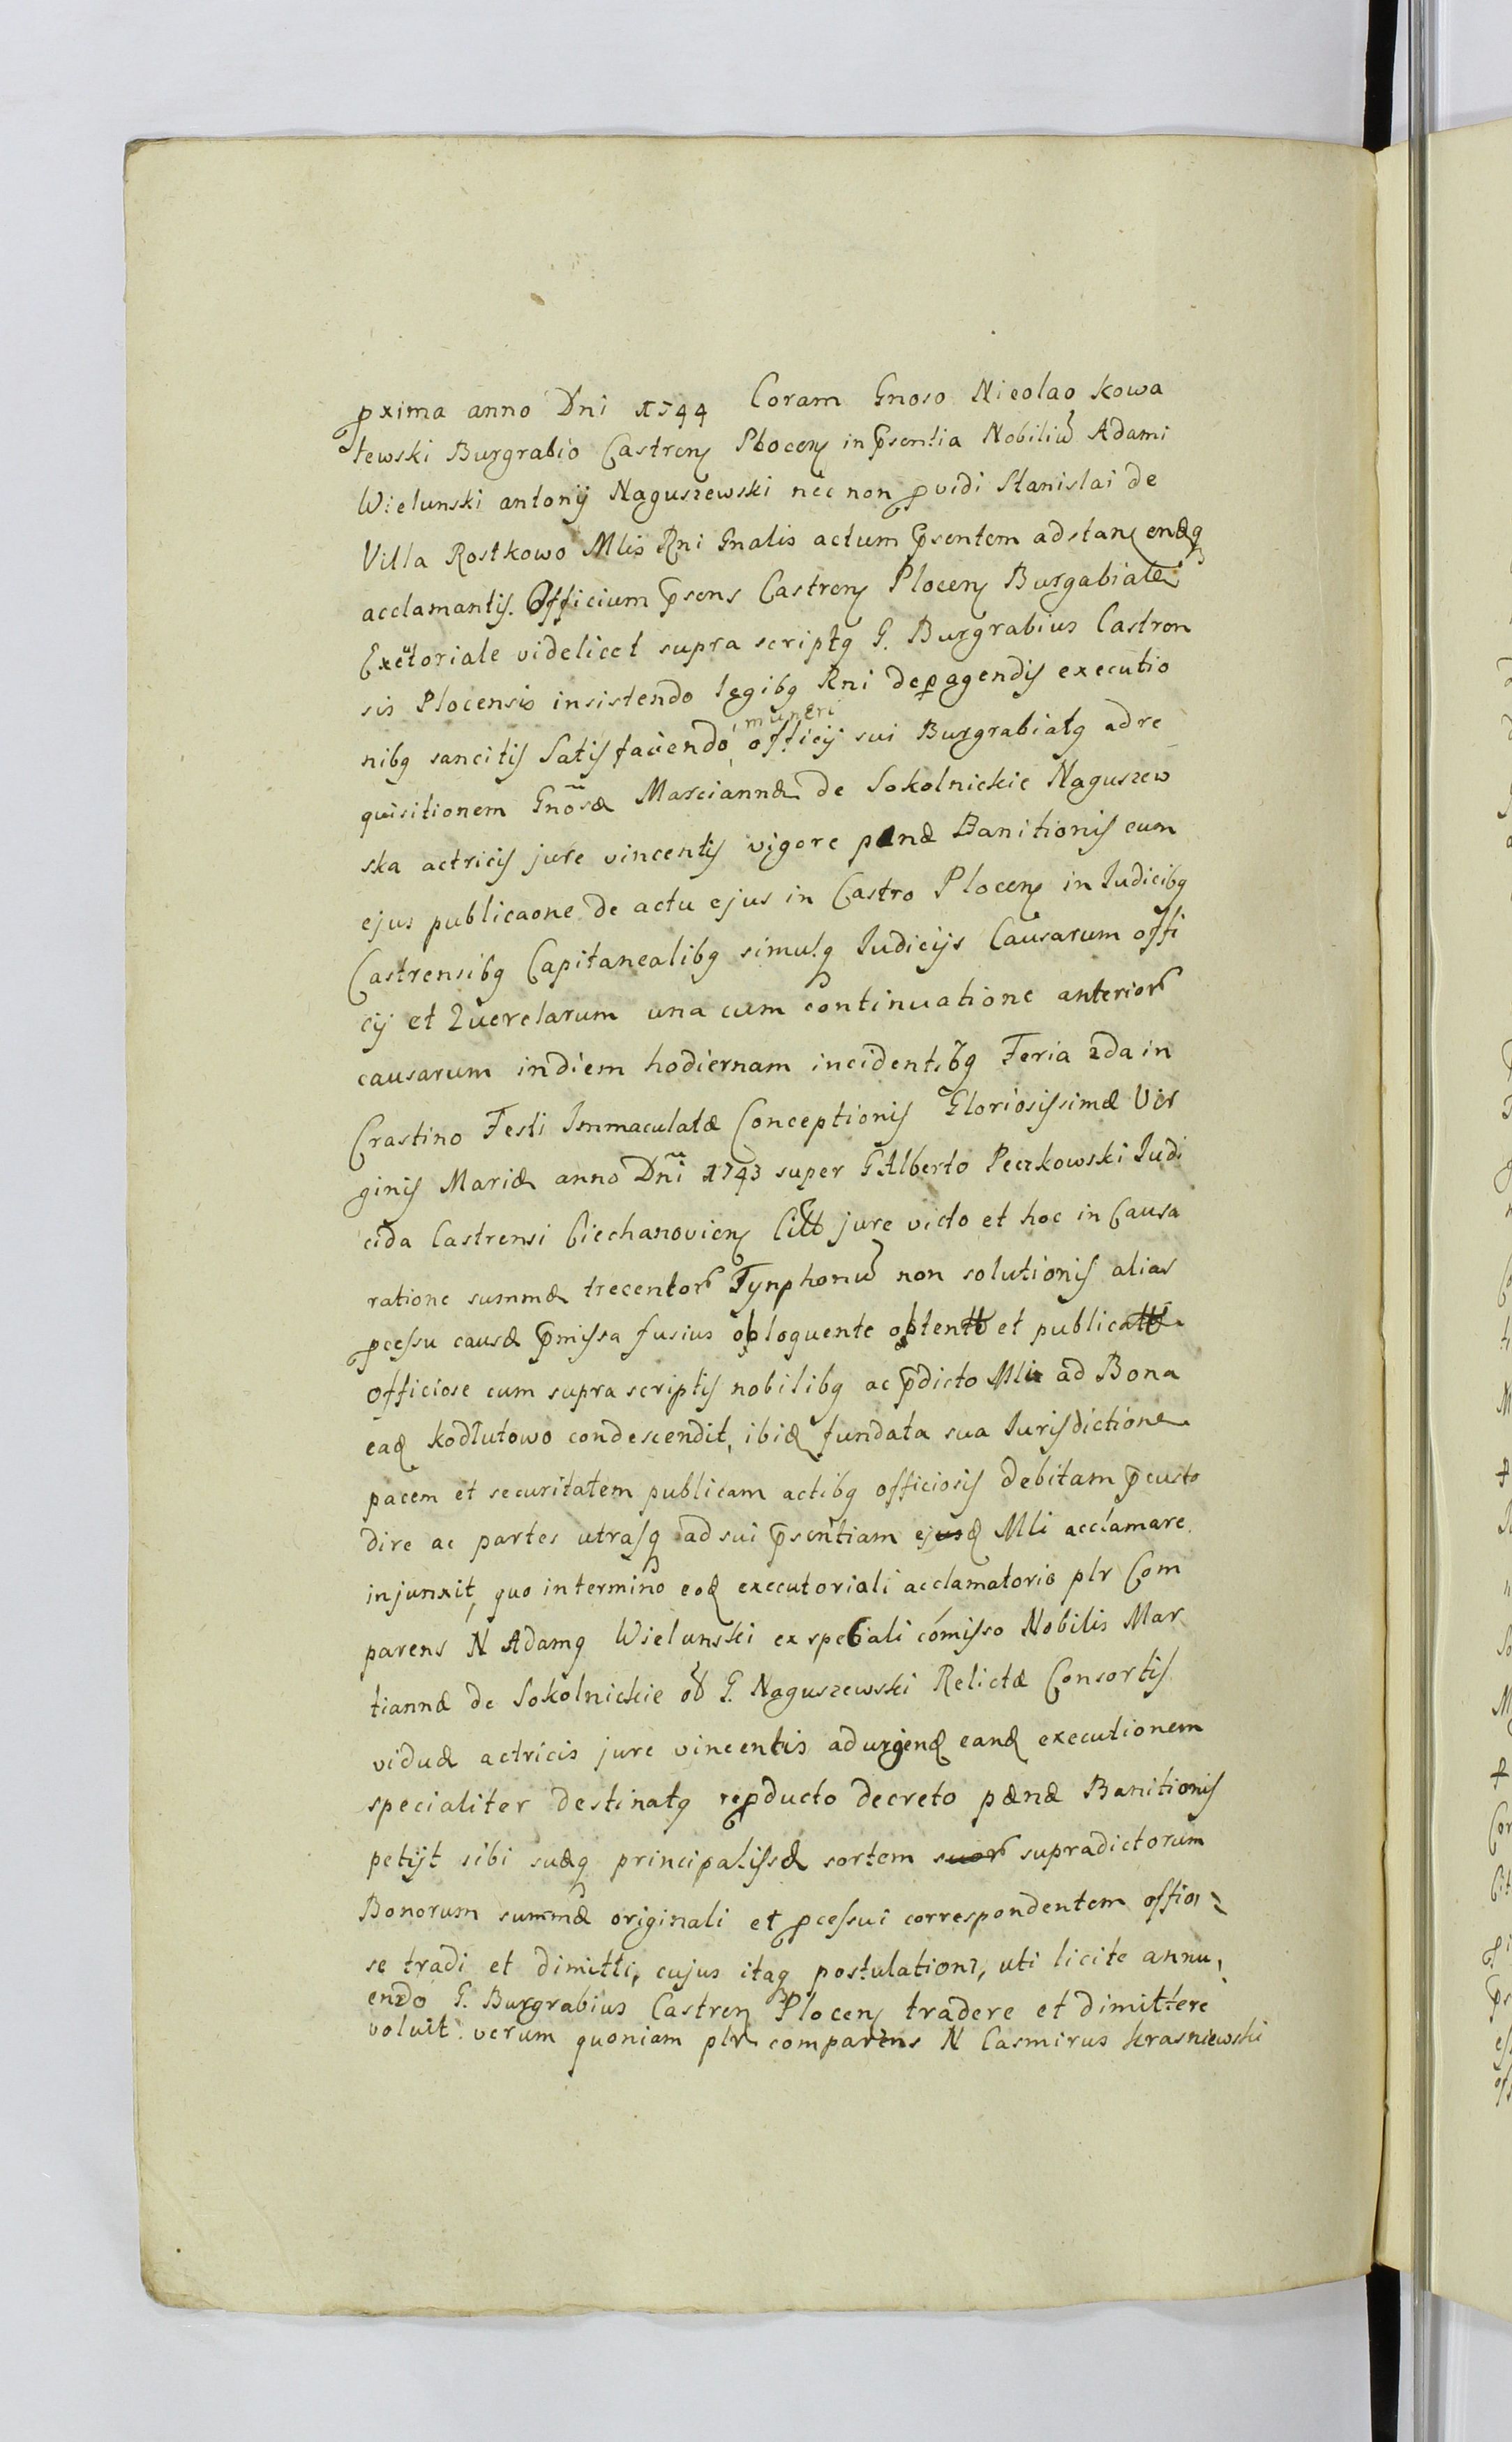 pxima anno Dni 1744 Coram Gnoso Nicolao Kowa
lewski Burgrabio Castren Plocen in psentia Nobiliu Adami
Wielunski antonij Naguszewski nec non pvidi Stanislai de
Villa Rostkowo Mlis Rni Gnalis actum psentem adstan endq
acclamantis. Officium psens Castren Plocen Burgabiale
Exetoriale videlicet supra scriptq G. Burgrabius Castren
sis Plocensis insistendo legibq Rni de pagendis executio
nibq sancitis Satis faciendo muneri officij sui Burgrabiatq ad re
quisitionem Gnosæ Marciannæ de Sokolnickie Naguszew
ska actricis jure vincentis vigore pænæ Banitionis cum
ejus publicaone de actu ejus in Castro Plocen in Iudicibq
Castrensibq Capitanealibq simulq Iudicijs Causarum offi
cij et Querelarum una cum continuatione anterior
causarum in diem hodiernam incidentibq Feria 2da in
Crastino Festi Immaculatæ Conceptionis Gloriosissimæ Vir
ginis Mariæ anno Dni 1743 super G Alberto Peczkowski Iudi
cida Castrensi Ciechanovien Citto jure victo et hoc in Causa
ratione summæ trecentor Tynphonu non solutionis alias
pcessu causæ pmissa fusius obloquente obtentto et publicatto
officiose cum supra scriptis nobilibq ac pdicto Mli ad Bona
ead Kodłutowo condescendit, ibid fundata sua Iurisdictione
pacem et securitatem publicam actibq officiosis debitam pcusto
dire ac partes utrasq ad sui psentiam ejusd Mli acclamare
injunxit, quo in termino eod executoriali acclamatorio plr Com
parens N Adamq Wielunski ex speciali comisso Nobilis Mar
tiannæ de Sokolnickie o G. Naguszewski Relictæ Consortis
viduæ actricis jure vincentis ad urgend eand executionem
specialiter destinatq repducto decreto pænæ Banitionis
petijt sibi suæq principalissæ sortem suor supradictorum
Bonorum summæ originali et pcessui correspondentem offio
se tradi et dimitti, cujus itaq postulationi, uti licite annu,
endo G. Burgrabius Castren Plocen tradere et dimittere
voluit. verum quoniam plr comparens N Casmirus Krasniewski